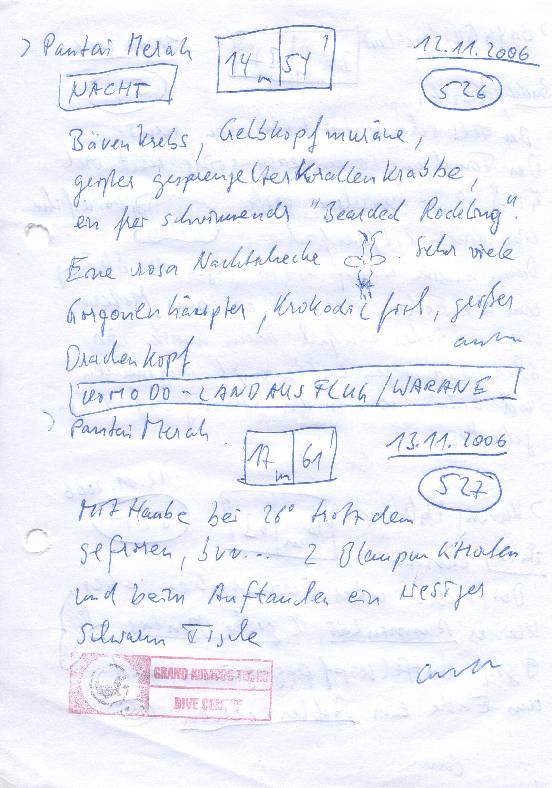 > Pantai Merah
14 m 54'
12.11.2006
NACHT
526
Bärenkrebs, Gelbkopfmuräne,
großer gesprengelter Korallenkrabbe,
ein frei schwimmender "Bearded Rockling".
Eine rosa Nachtschecke . Sehr viele
Gorgonenhäupter, Krokodilfisch, großer
Drachenkopf
KOMODO-LANDAUSFLUG/WARANE
> Pantai Merah
17 m 61'
13.11.2006
527
Mit Haube bei 26° trotzdem
gefroren, brr... 2 Blaupunktrochen
und beim Auftauchen ein riesiger
Schwarm Fische
GRAND KOMODO TOURS
DIVE CENTRE